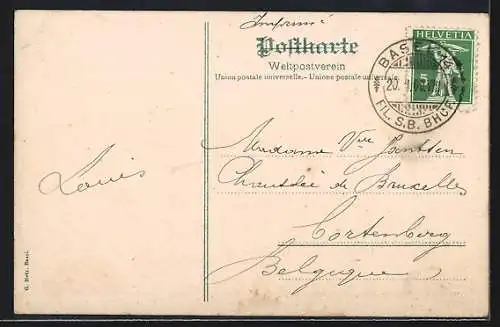 Imprimé
Postkarte
Weltpostverein
Union postale universelle. - Unione postale universale
HELVETIA
5
BASEL
20.
FIL. S.B. BHOF
Madame Vve
Chaussée de Bruxelles
Cortenberg
Belgique
Louis
G. Metz, Basel.